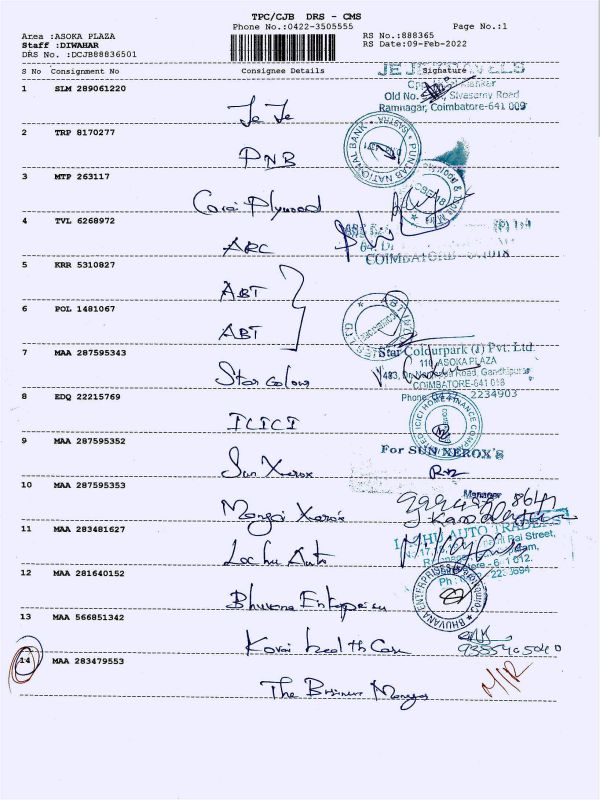 TPC/CJB DRS - CMS
Phone No.:0422-3505555
Page No.:1
Area :ASOKA PLAZA
Staff :DIWAHAR
DRS No. :DCJB88836501
RS No.:888365
RS Date:09-Feb-2022
S No Consignment No Consignee Details Signature
1 SLM 289061220
Je Je
Old No. Sivasamy Road
Ramnagar, Coimbatore-641 009
2 TRP 8170277
PNB
PUNJAB NATIONAL BANK
3 MTP 263117
Covai Plywood
4 TVL 6268972
ARC
COIMBATORE
5 KRR 5310827
ABT
6 POL 1481067
ABT
7 MAA 287595343
Star Colour
Star Colourpark (I) Pvt. Ltd.
110, ASOKA PLAZA
Road, Gandhipuram
COIMBATORE-641 018
Phone 2234903
8 EDQ 22215769
ICICI
ICICI HOME FINANCE COMPANY
9 MAA 287595352
Sun Xerox
For SUN XEROX'S
10 MAA 287595353
Mangai Xerox
Manager
11 MAA 283481627
Lachu Auto
AUTO TRADERS
12 MAA 281640152
Bhuvana Enterprises
BHUVANA ENTERPRISES
13 MAA 566851342
Kovai Health Care
14 MAA 283479553
The Business Manager